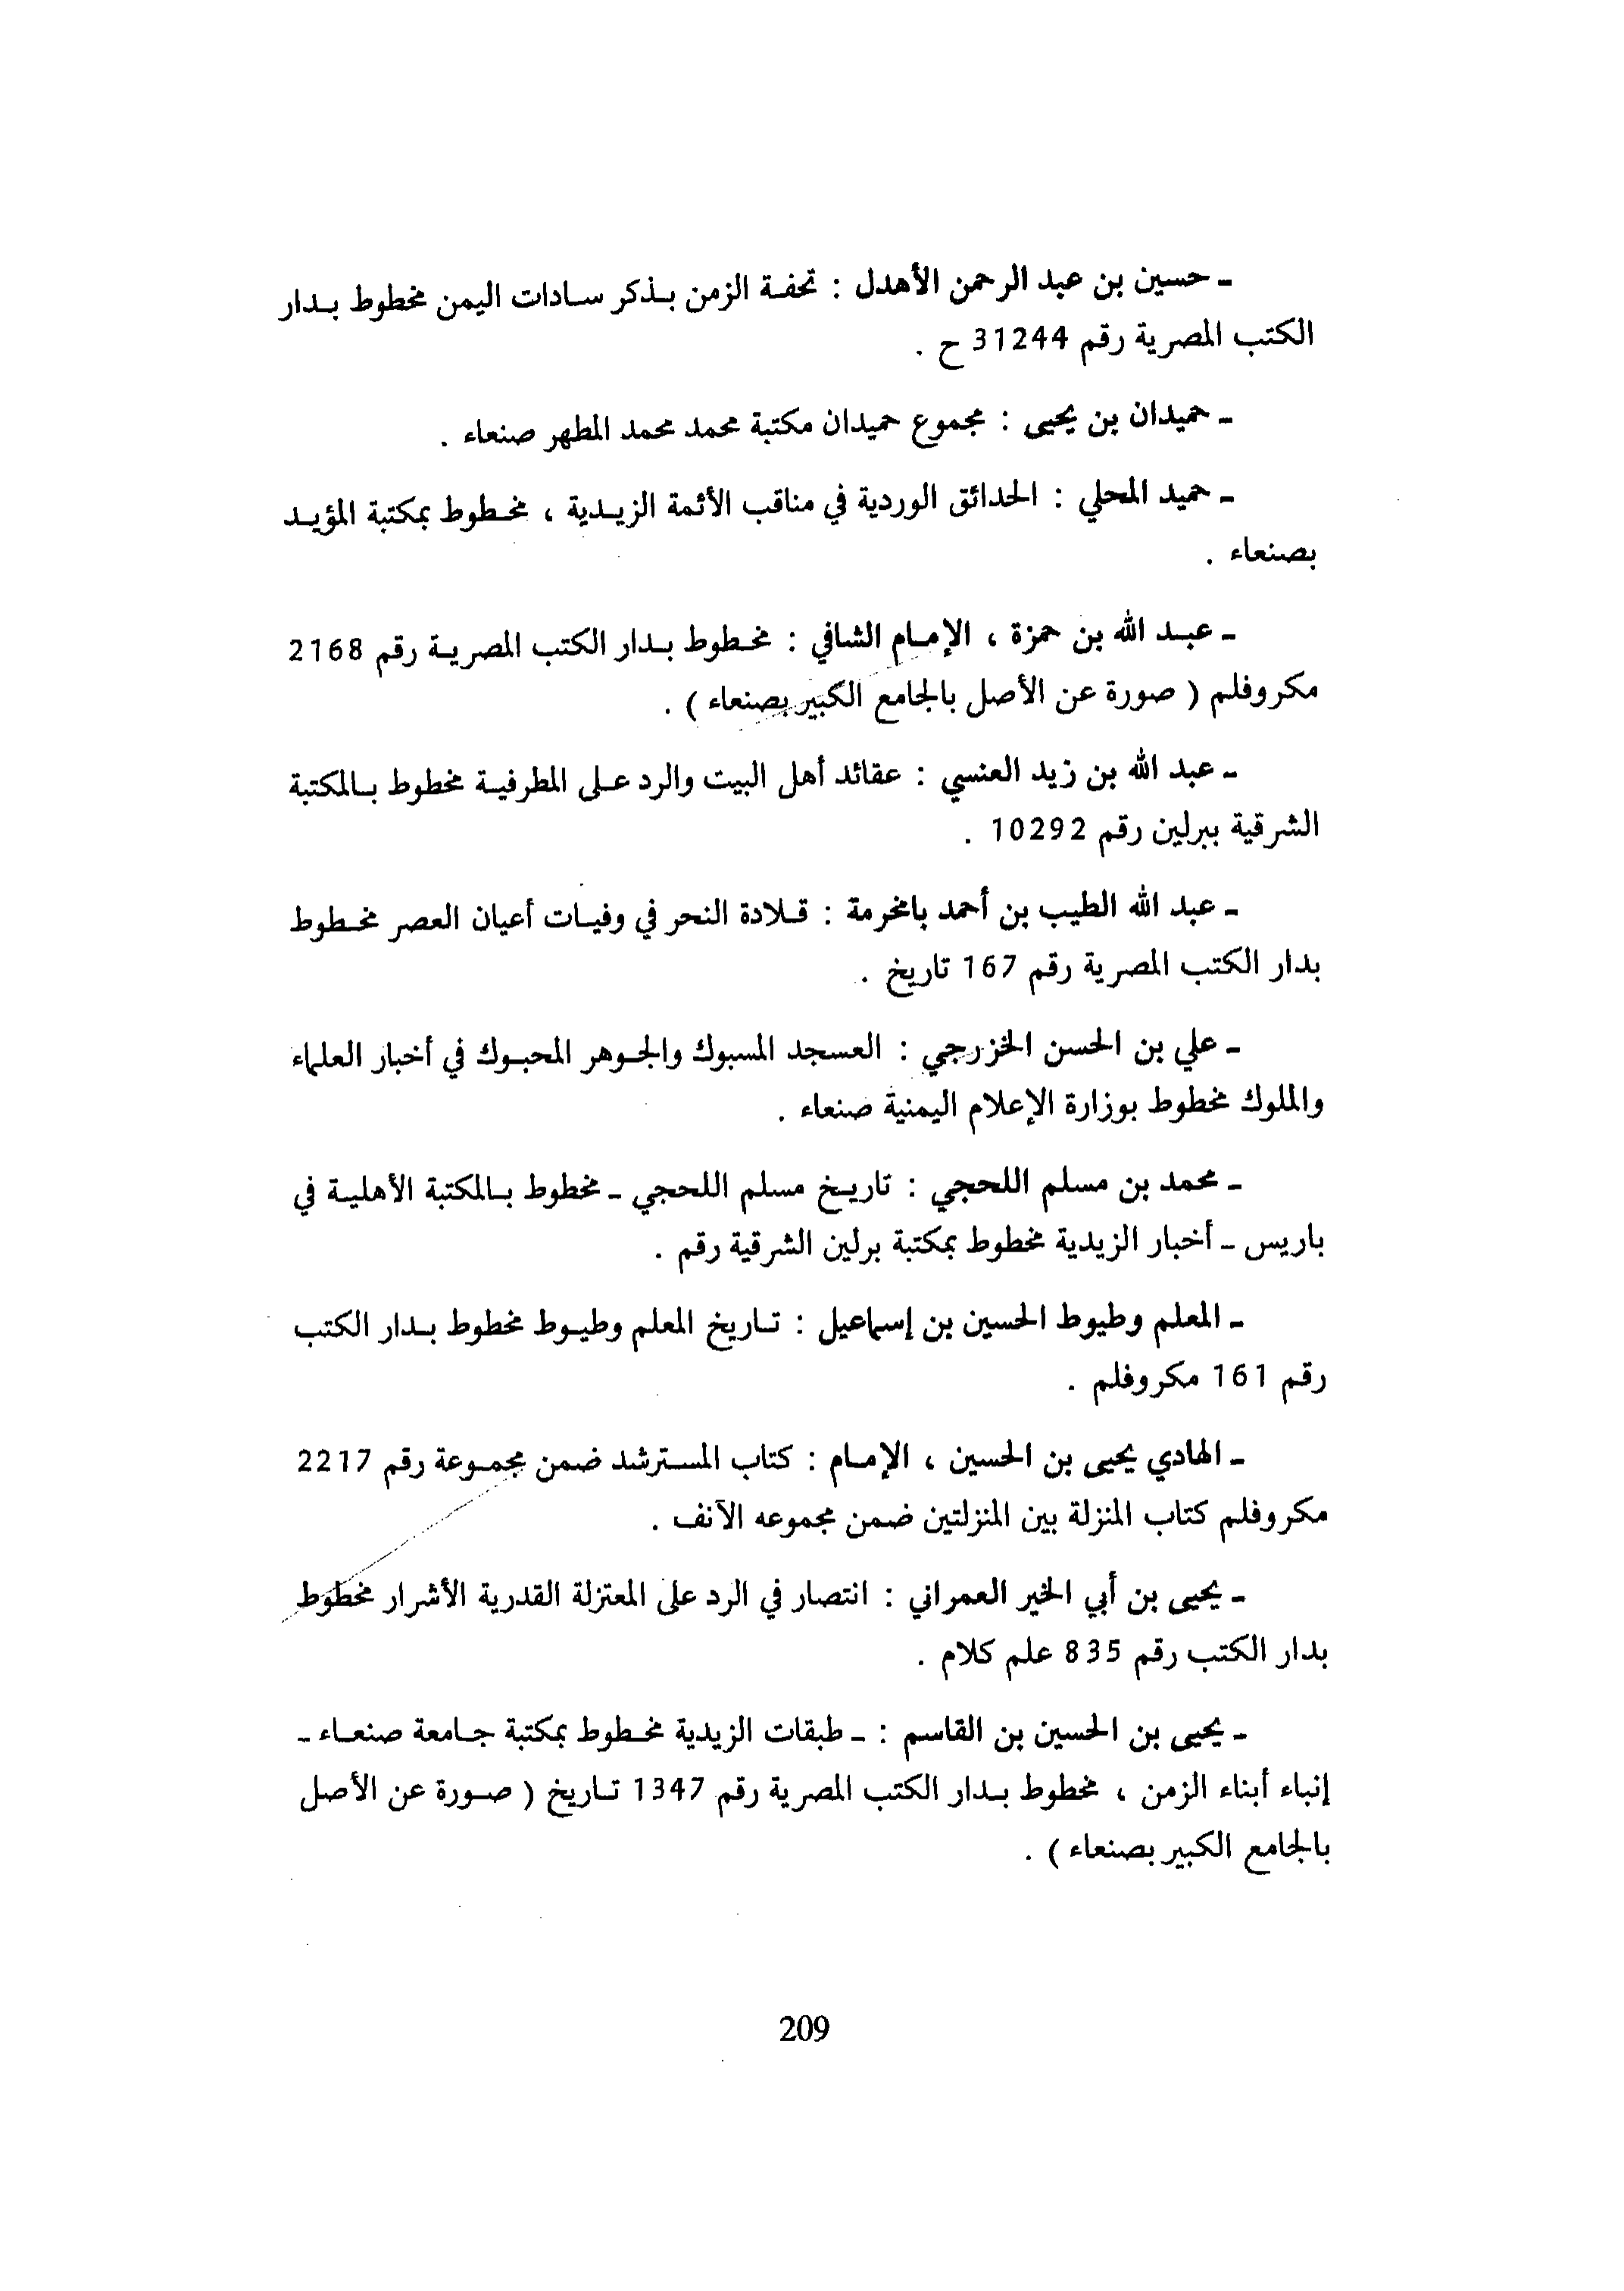 ـ حسين بن عبد الرحمن الأهدل : تحفة الزمن بذكر سادات اليمن مخطوط بدار
الكتب المصرية رقم 31244 ح .
ـ حميدان بن يحيى : مجموع حميدان مكتبة محمد محمد المطهر صنعاء .
ـ حميد المحلي : الحدائق الوردية في مناقب الأئمة الزيدية ، مخطوط بمكتبة المؤيد
بصنعاء .
ـ عبد الله بن حمزة ، الإمام الشافي : مخطوط بدار الكتب المصرية رقم 2168
مكروفلم ( صورة عن الأصل بالجامع الكبير بصنعاء ) .
ـ عبد الله بن زيد العنسي : عقائد أهل البيت والرد على المطرفية مخطوط بالمكتبة
الشرقية ببرلين رقم 10292 .
ـ عبد الله الطيب بن أحمد بامخرمة : قلادة النحر في وفيات أعيان العصر مخطوط
بدار الكتب المصرية رقم 167 تاريخ .
ـ علي بن الحسن الخزرجي : العسجد المسبوك والجوهر المحبوك في أخبار العلماء
والملوك مخطوط بوزارة الإعلام اليمنية صنعاء .
ـ محمد بن مسلم اللحجي : تاريخ مسلم اللحجي ـ مخطوط بالمكتبة الأهلية في
باريس ـ أخبار الزيدية مخطوط بمكتبة برلين الشرقية رقم .
ـ المعلم وطيوط الحسين بن إسماعيل : تاريخ المعلم وطيوط مخطوط بدار الكتب
رقم 161 مكروفلم .
ـ الهادي يحيى بن الحسين ، الإمام : كتاب المسترشد ضمن مجموعة رقم 2217
مكروفلم كتاب المنزلة بين المنزلتين ضمن مجموعه الآنف .
ـ يحيى بن أبي الخير العمراني : انتصار في الرد على المعتزلة القدرية الأشرار مخطوط
بدار الكتب رقم 835 علم كلام .
ـ يحيى بن الحسين بن القاسم : ـ طبقات الزيدية مخطوط بمكتبة جامعة صنعاء ـ
إنباء أبناء الزمن ، مخطوط بدار الكتب المصرية رقم 1347 تاريخ ( صورة عن الأصل
بالجامع الكبير بصنعاء ) .
209